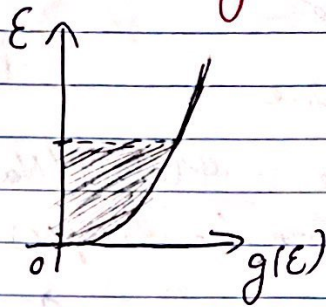 ε
0
g(ε)